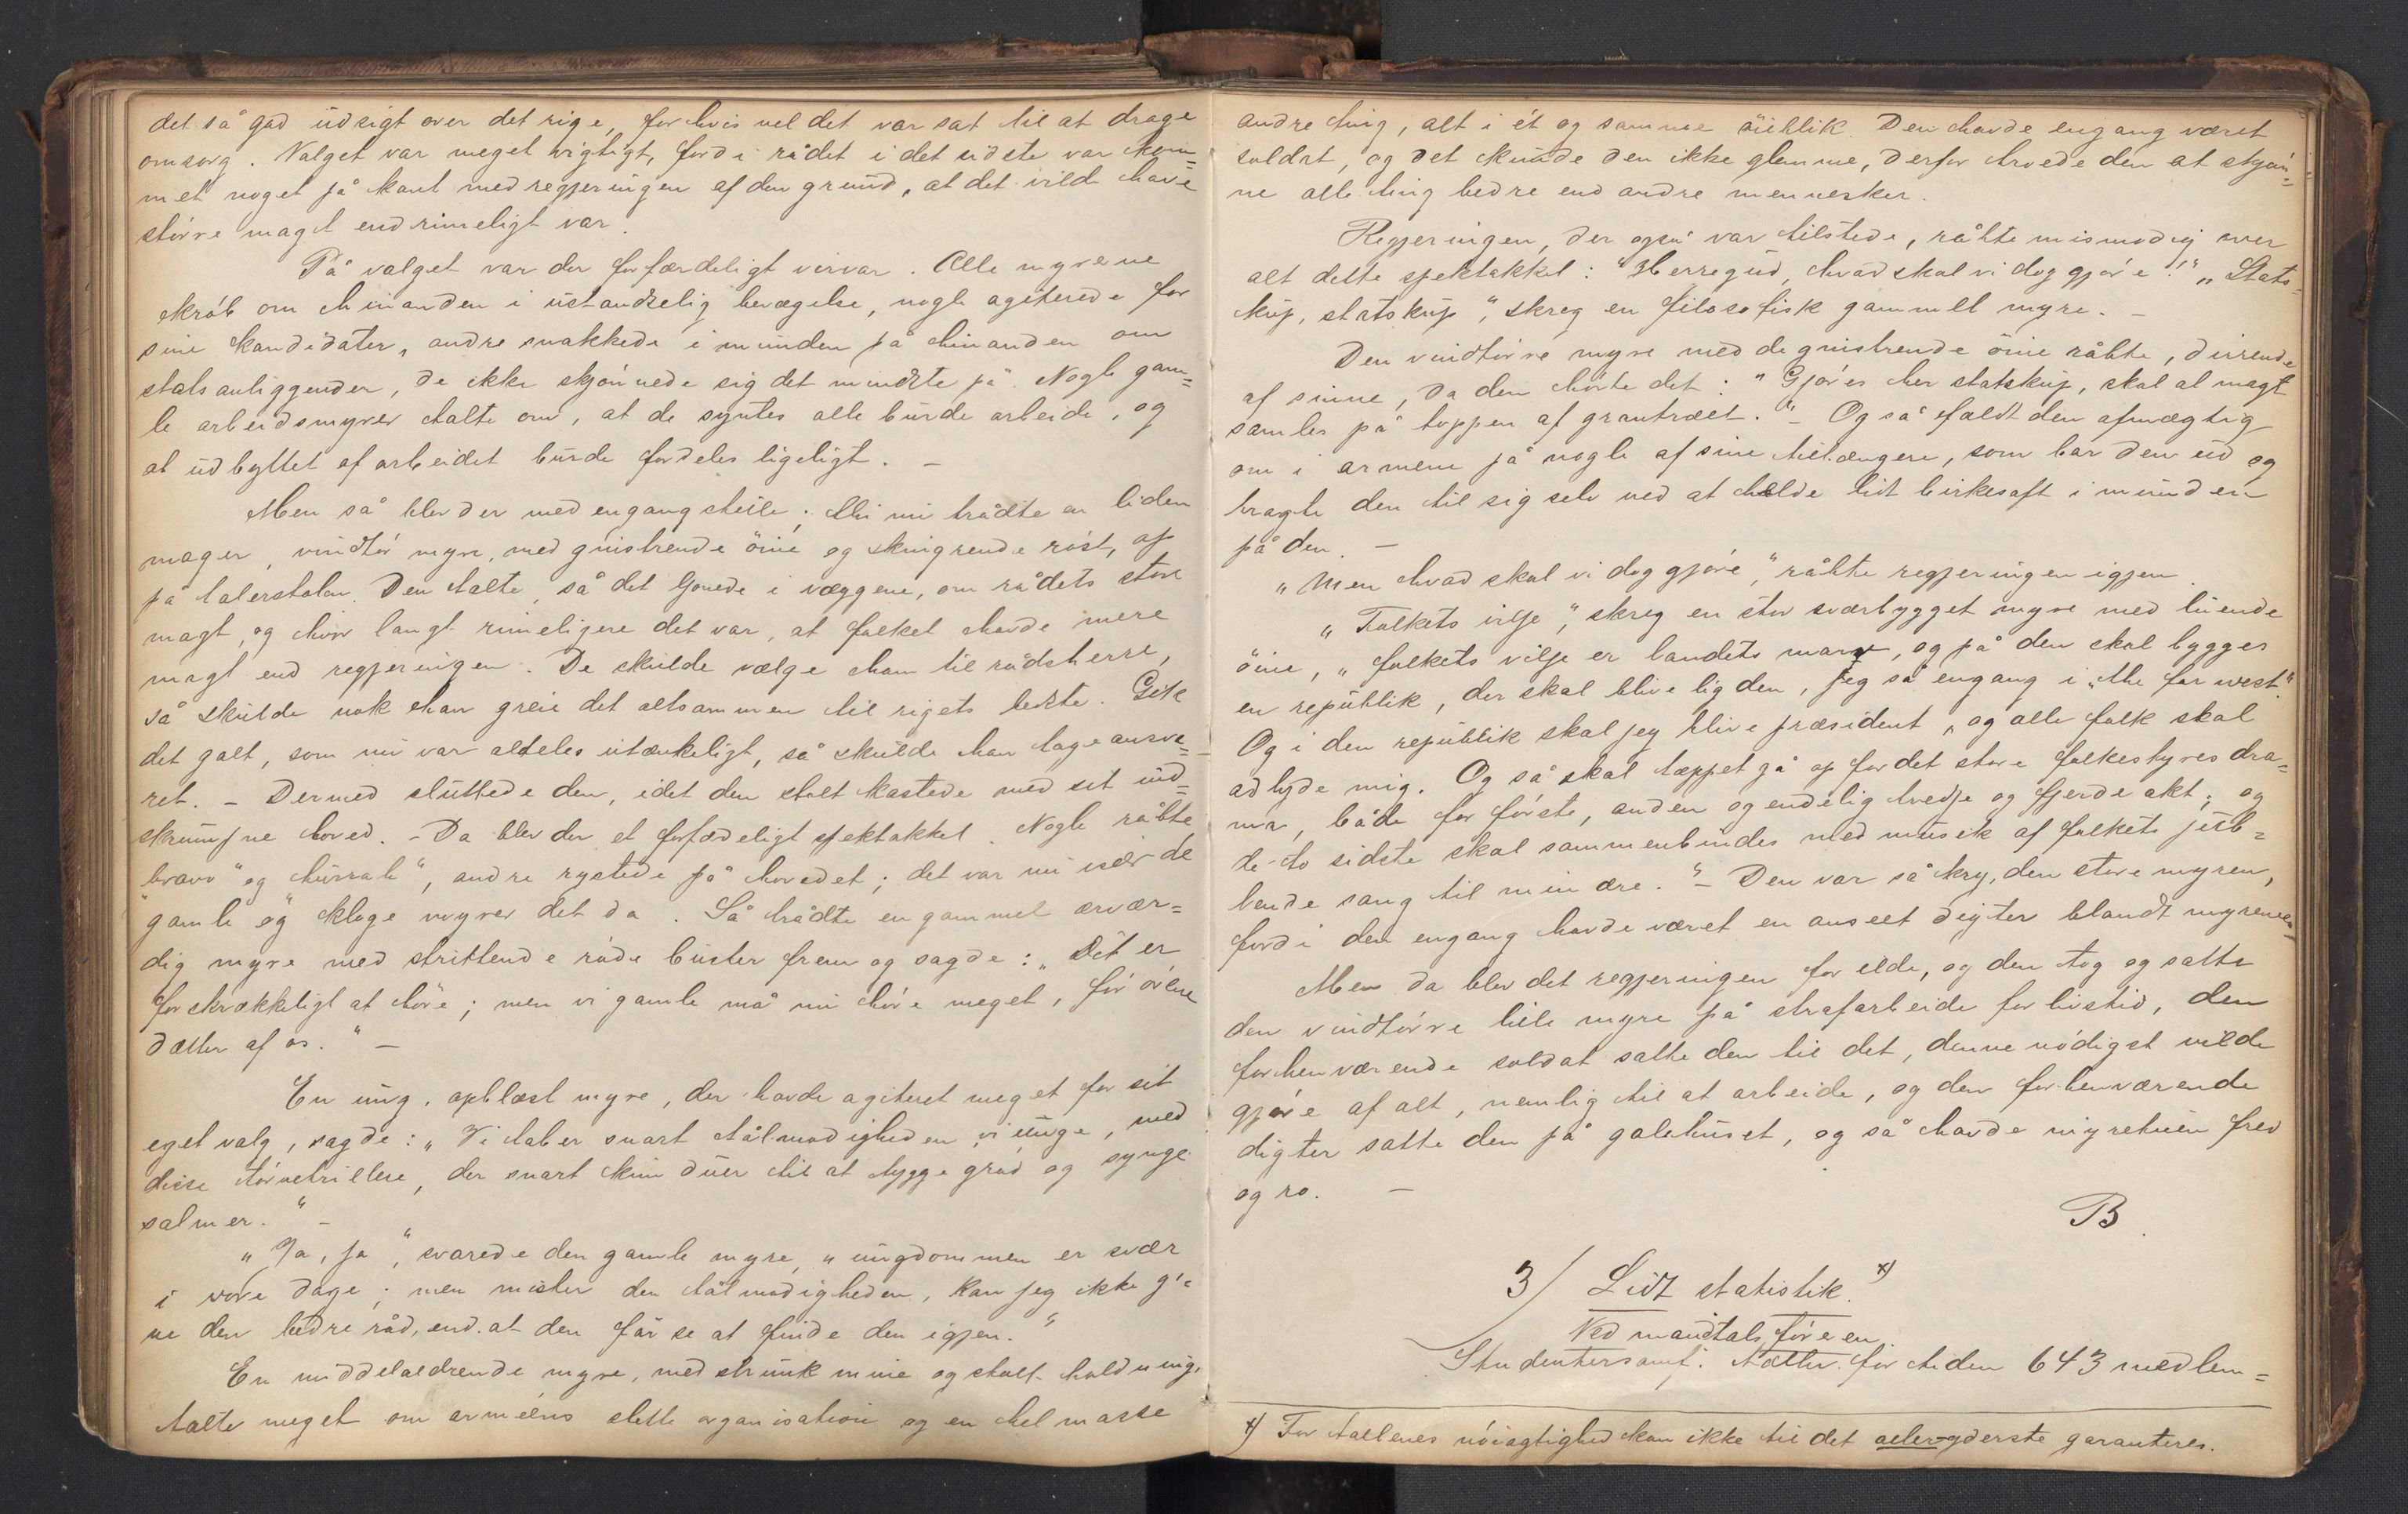 det så god udsigt over det rige, for hvis vel det var sat til at drage
omsorg. Valget var meget vigtigt, fordi rådet i det sidste var kom=
met noget på kant med regjeringen af den grund, at det vilde have
större magt end rimeligt var.
På valget var der forfærdeligt virvar. Alle myrene
krøb om hinanden i ustandselig bevægelse, nogle agiterede for
sine kandidater, andre snakkede i munden på hinanden om
statsanliggender, de ikke skjönnede sig det mindste på. Nogle gam=
le arbeidsmyrer talte om, at de syntes alle burde arbeide, og
at udbyttet af arbeidet burde fordeles ligeligt. –
Men så blev der med engang stille; thi nu trådte en liden
mager, vindtör myre, med gnistrende öine og skingrende röst, op
på talerstolen. Den talte, så det ljomede i væggene, om rådets store
magt, og hvor langt rimeligere det var, at folket havde mere
magt end regjeringen. De skulde vælge ham til rådsherre,
så skulde nok han greie det altsammen til rigets bedste. Gik
det galt, som nu var aldeles utænkeligt, så skulde han tage ansva=
ret. – Dermed sluttede den, idet den stolt kastede med sit ind=
skrumpne hoved. – Da blev der et forfærdeligt spektakkel. Nogle råbte
"bravo" og "hurrah", andre rystede på hovedet; det var nu især de
gamle og kloge myrer det da. Så trådte en gammel ærvær=
dig myre med strittende röde buster frem og sagde: „Det er
forskrækkeligt at höre; men vi gamle må nu höre meget, för örene
dætter af os." –
En ung, opblæst myre, der havde agiteret meget for sit
eget valg, sagde: „Vi taber snart tålmodigheden, vi unge, med
disse törvetrillere, der snart kun duer til at tygge gröd og synge
salmer." –
„Ja, ja", svarede den gamle myre, „ungdommen er svær
i vore dage; men mister den tålmodigheden, kan jeg ikke gi=
ve den bedre råd, end at den får se at finde den igjen."
En middelaldrende myre, med strunk mine og stolt holdning,
talte meget om arméens slette organisation og en hel masse
andre ting, alt i ét og samme öieblik. Den havde engang været
soldat, og det kunde den ikke glemme, derfor troede den at skjön=
ne alle ting bedre end andre mennesker.
Regjeringen, der også var tilstede, råbte mismodig over
alt dette spektakkel: "Herregud, hvad skal vi dog gjöre!" „Stats=
kup, statskup", skreg en filosofisk gammel myre. –
Den vindtörre myre med de gnistrende öine råbte, dirrende
af sinne, da den hörte det: "Gjöres her statskup, skal al magt
samles på toppen af grantræet." – Og så faldt den afmægtig
om i armene på nogle af sine tilhængere, som bar den ud og
bragte den til sig selv ved at helde lidt birkesaft i munden
på den. –
„Men hvad skal vi dog gjöre", råbte regjeringen igjen.
„Folkets vilje", skreg en stor sværbygget myre med luende
öine, „folkets vilje er landets marv, og på den skal bygges
en republik, der skal blive lig den, jeg så engang i „the far west."
Og i den republik skal jeg blive præsident, og alle folk skal
adlyde mig. Og så skal tæppet gå op for det store folkestyres dra=
ma, både for förste, anden og endelig tredje og fjerde akt; og
de to sidste skal sammenbindes med musik af folkets jub=
lende sang til min ære." – Den var så kry, den store myren,
fordi den engang havde været en anseet digter blandt myrerne.
Men da blev det regjeringen for ilde, og den tog og satte
den vindtörre lille myre på strafarbeide for livstid, den
forhenværende soldat satte den til det, denne nödigst vilde
gjöre af alt, nemlig til at arbeide, og den forhenværende
digter satte den på galehuset, og så havde myretuen fred
og ro. –
B.
3/ Lidt statistik. *)
Ved mandtalsföreren.
Studentersamf. tæller för tiden 643 medlem=
*) For tallenes nöiagtighed kan ikke til det aller-yderste garanteres.